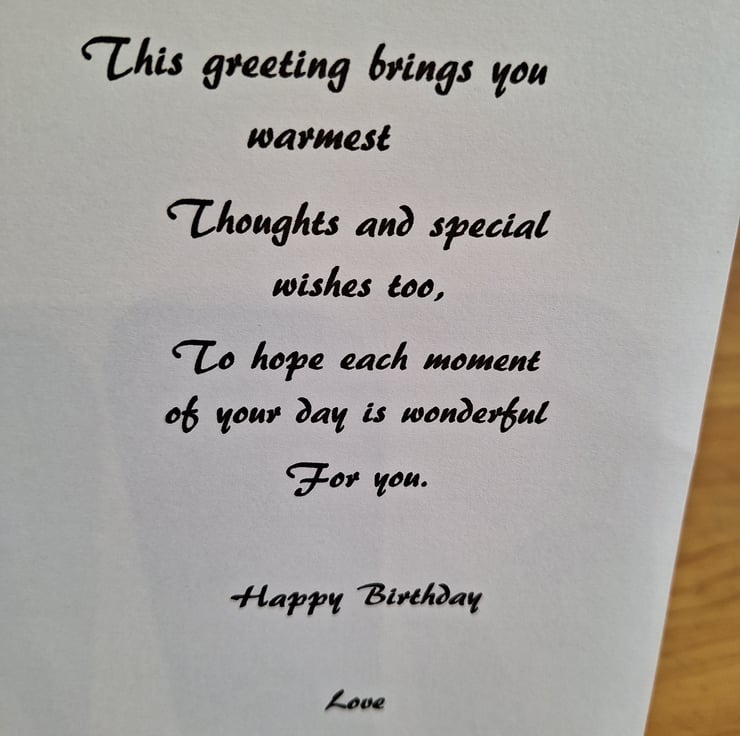 This greeting brings you
warmest
Thoughts and special
wishes too,
To hope each moment
of your day is wonderful
For you.
Happy Birthday
Love